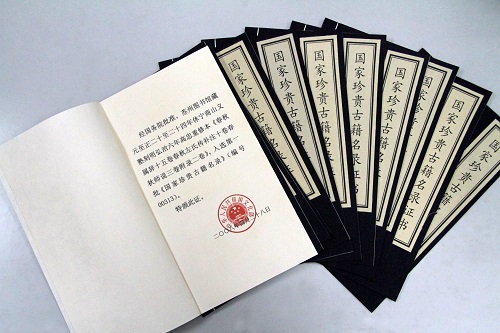 经国务院批准，苏州图书馆藏
元至正二十至二十四年休宁商山义
塾刻明弘治六年高忠重修本《春秋
属辞十五卷春秋左氏传补注十卷春
秋师说三卷附录二卷》，入选第一
批《国家珍贵古籍名录》（编号
00313）。
特颁此证。
国家珍贵古籍名录证书
国家珍贵古籍名录证书
国家珍贵古籍名录证书
国家珍贵古籍名录证书
国家珍贵古籍名录证书
国家珍贵古籍名录证书
国家珍贵古籍名录证书